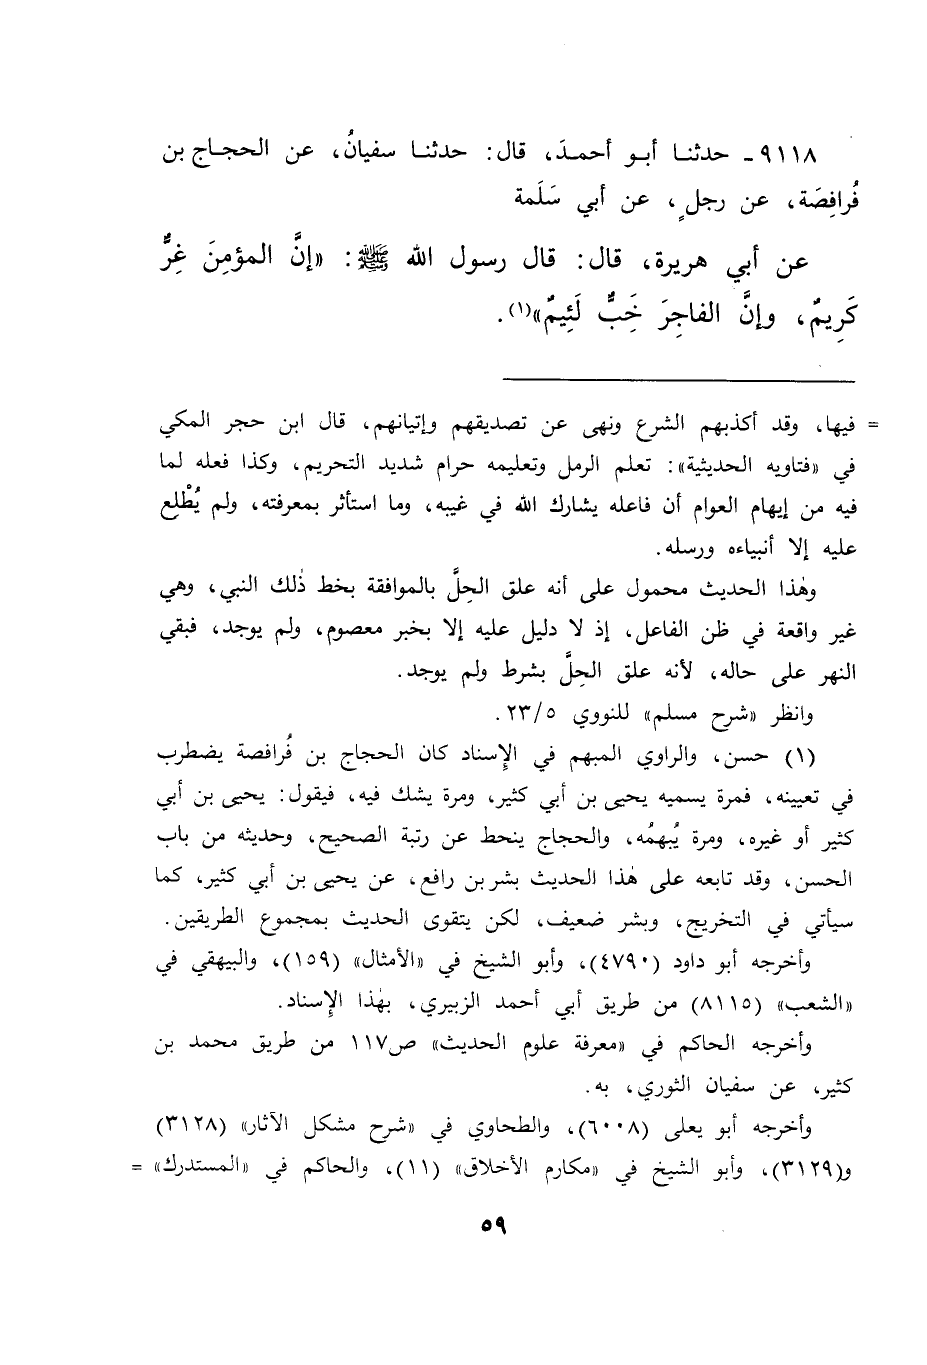 ٩١١٨ـ حدثنا أبو أحمدَ، قال: حدثنا سفيانُ، عن الحجاج بن
فُرافِصَة، عن رجلٍ، عن أبي سَلَمة
عن أبي هريرة، قال: قال رسول الله ﷺ: «إنَّ المؤمِنَ غِرٌّ
كَرِيمٌ، وإنَّ الفاجِرَ خَبٌّ لَئِيمٌ»(١).
= فيها، وقد أكذبهم الشرع ونهى عن تصديقهم وإتيانهم، قال ابن حجر المكي
في «فتاويه الحديثية»: تعلم الرمل وتعليمه حرام شديد التحريم، وكذا فعله لما
فيه من إيهام العوام أن فاعله يشارك الله في غيبه، وما استأثر بمعرفته، ولم يُطْلِع
عليه إلا أنبياءه ورسله.
وهٰذا الحديث محمول على أنه علق الحِلَّ بالموافقة بخط ذٰلك النبي، وهي
غير واقعة في ظن الفاعل، إذ لا دليل عليه إلا بخبر معصوم، ولم يوجد، فبقي
النهر على حاله، لأنه علق الحِلَّ بشرط ولم يوجد.
وانظر «شرح مسلم» للنووي ٢٣/٥.
(١) حسن، والراوي المبهم في الإسناد كان الحجاج بن فُرافصة يضطرب
في تعيينه، فمرة يسميه يحيى بن أبي كثير، ومرة يشك فيه، فيقول: يحيى بن أبي
كثير أو غيره، ومرة يُبهمُه، والحجاج ينحط عن رتبة الصحيح، وحديثه من باب
الحسن، وقد تابعه على هٰذا الحديث بشر بن رافع، عن يحيى بن أبي كثير، كما
سيأتي في التخريج، وبشر ضعيف، لكن يتقوى الحديث بمجموع الطريقين.
وأخرجه أبو داود (٤٧٩٠)، وأبو الشيخ في «الأمثال» (١٥٩)، والبيهقي في
«الشعب» (٨١١٥) من طريق أبي أحمد الزبيري، بهٰذا الإسناد.
وأخرجه الحاكم في «معرفة علوم الحديث» ص١١٧ من طريق محمد بن
كثير، عن سفيان الثوري، به.
وأخرجه أبو يعلى (٦٠٠٨)، والطحاوي في «شرح مشكل الآثار» (٣١٢٨)
و(٣١٢٩)، وأبو الشيخ في «مكارم الأخلاق» (١١)، والحاكم في «المستدرك» =
٥٩